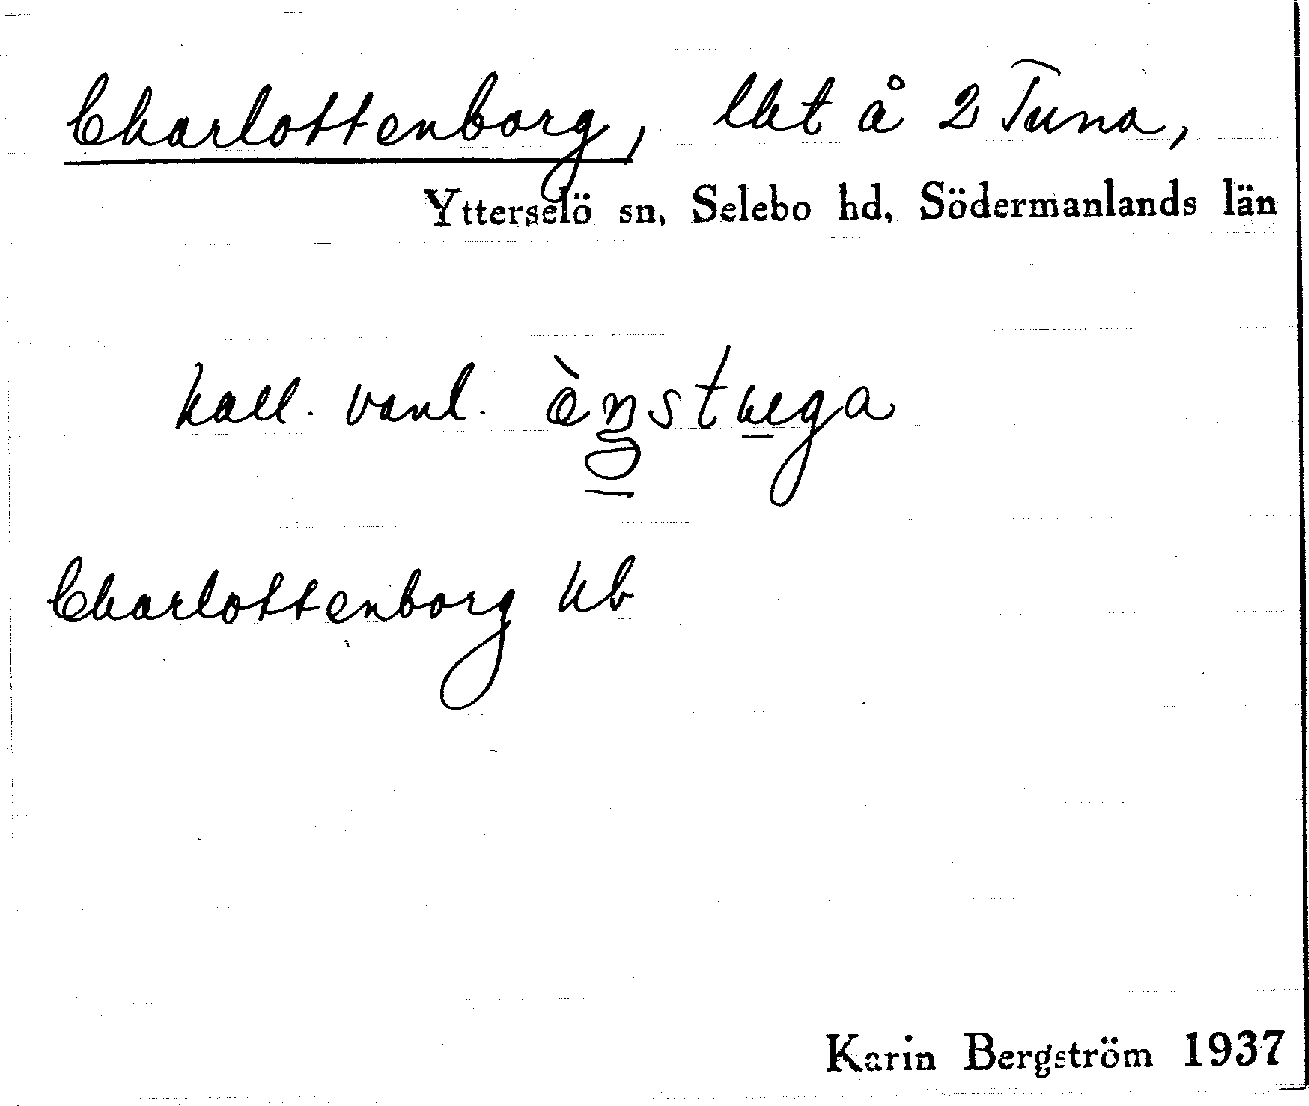 Charlottenborg, lht å 2 Tuna,
Ytterselö sn, Selebo hd, Södermanlands län
kall. vanl. ä̀ŋstuga
Charlottenborg kb
Karin Bergström 1937